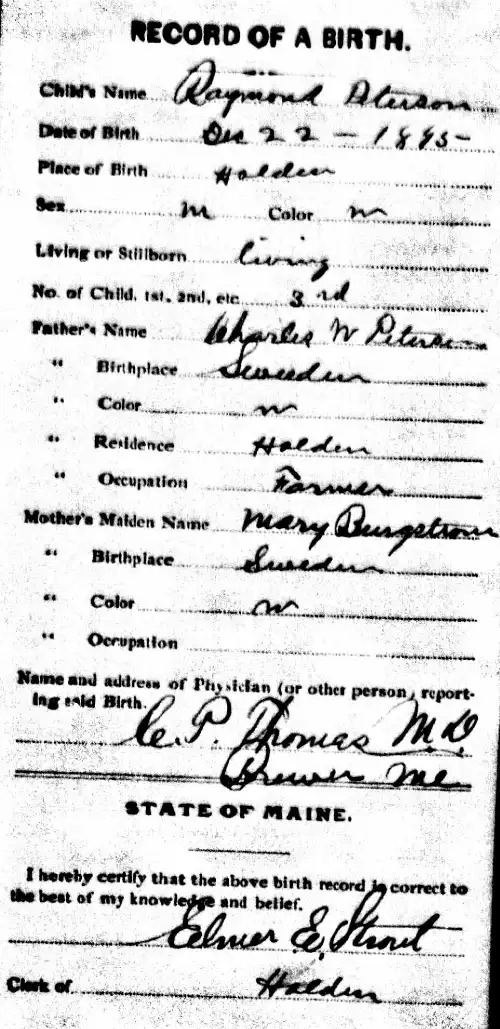 RECORD OF A BIRTH.
Child's Name Raymond Peterson
Date of Birth Dec 22 - 1895-
Place of Birth Holden
Sex M Color W
Living or Stillborn living
No. of Child, 1st, 2nd, etc. 3rd
Father's Name Charles W Peterson
" Birthplace Sweden
" Color W
" Residence Holden
" Occupation Farmer
Mother's Maiden Name Mary Burgstrom
" Birthplace Sweden
" Color W
" Occupation
Name and address of Physician (or other person) report-
ing said Birth.
C. P. Thomas M.D.
Brewer Me
STATE OF MAINE.
I hereby certify that the above birth record is correct to
the best of my knowledge and belief.
Elmer E. Strout
Clerk of Holden